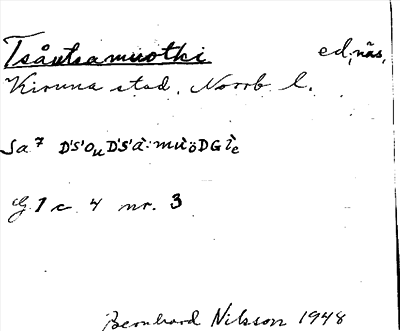 Tsåutsamuotki ed, näs,
Kiruna stad, Norrb l.
Sa 7 D's'ouD's'à:mùöDGìc
G 1 c 4 nr. 3
Bernhard Nilsson 1948